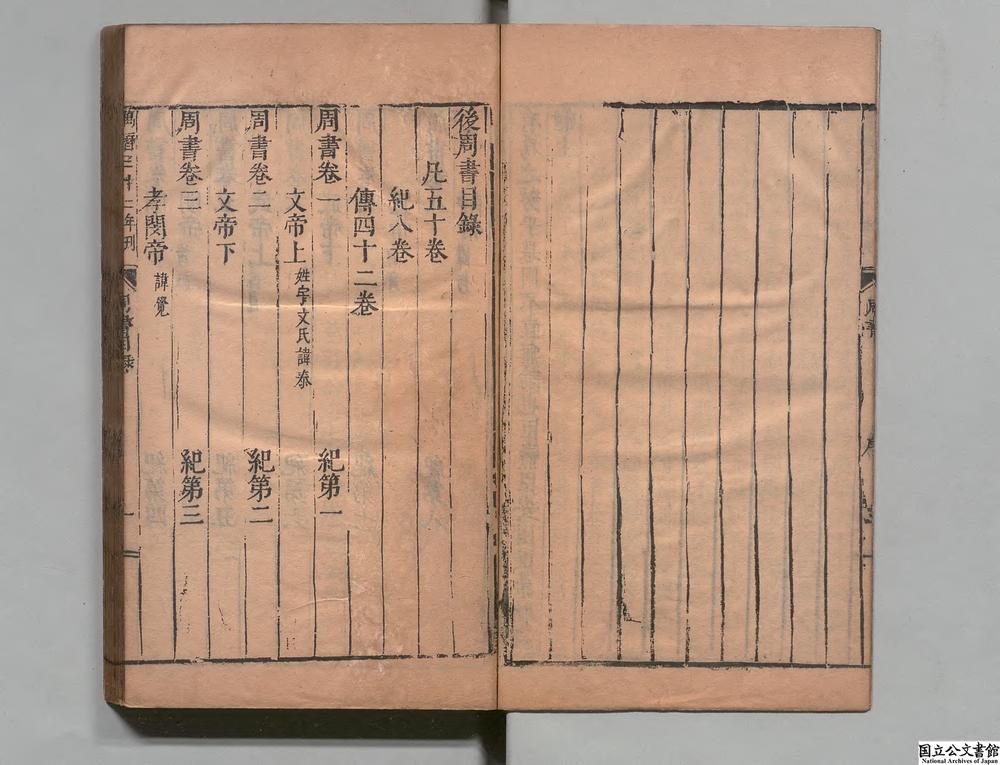 周書
序
後周書目錄
凡五十卷
紀八卷
傳四十二卷
周書卷一　紀第一
文帝上　姓宇文氏諱泰
周書卷二　紀第二
文帝下
周書卷三　紀第三
孝閔帝　諱覺
周書目錄
国立公文書館
National Archives of Japan